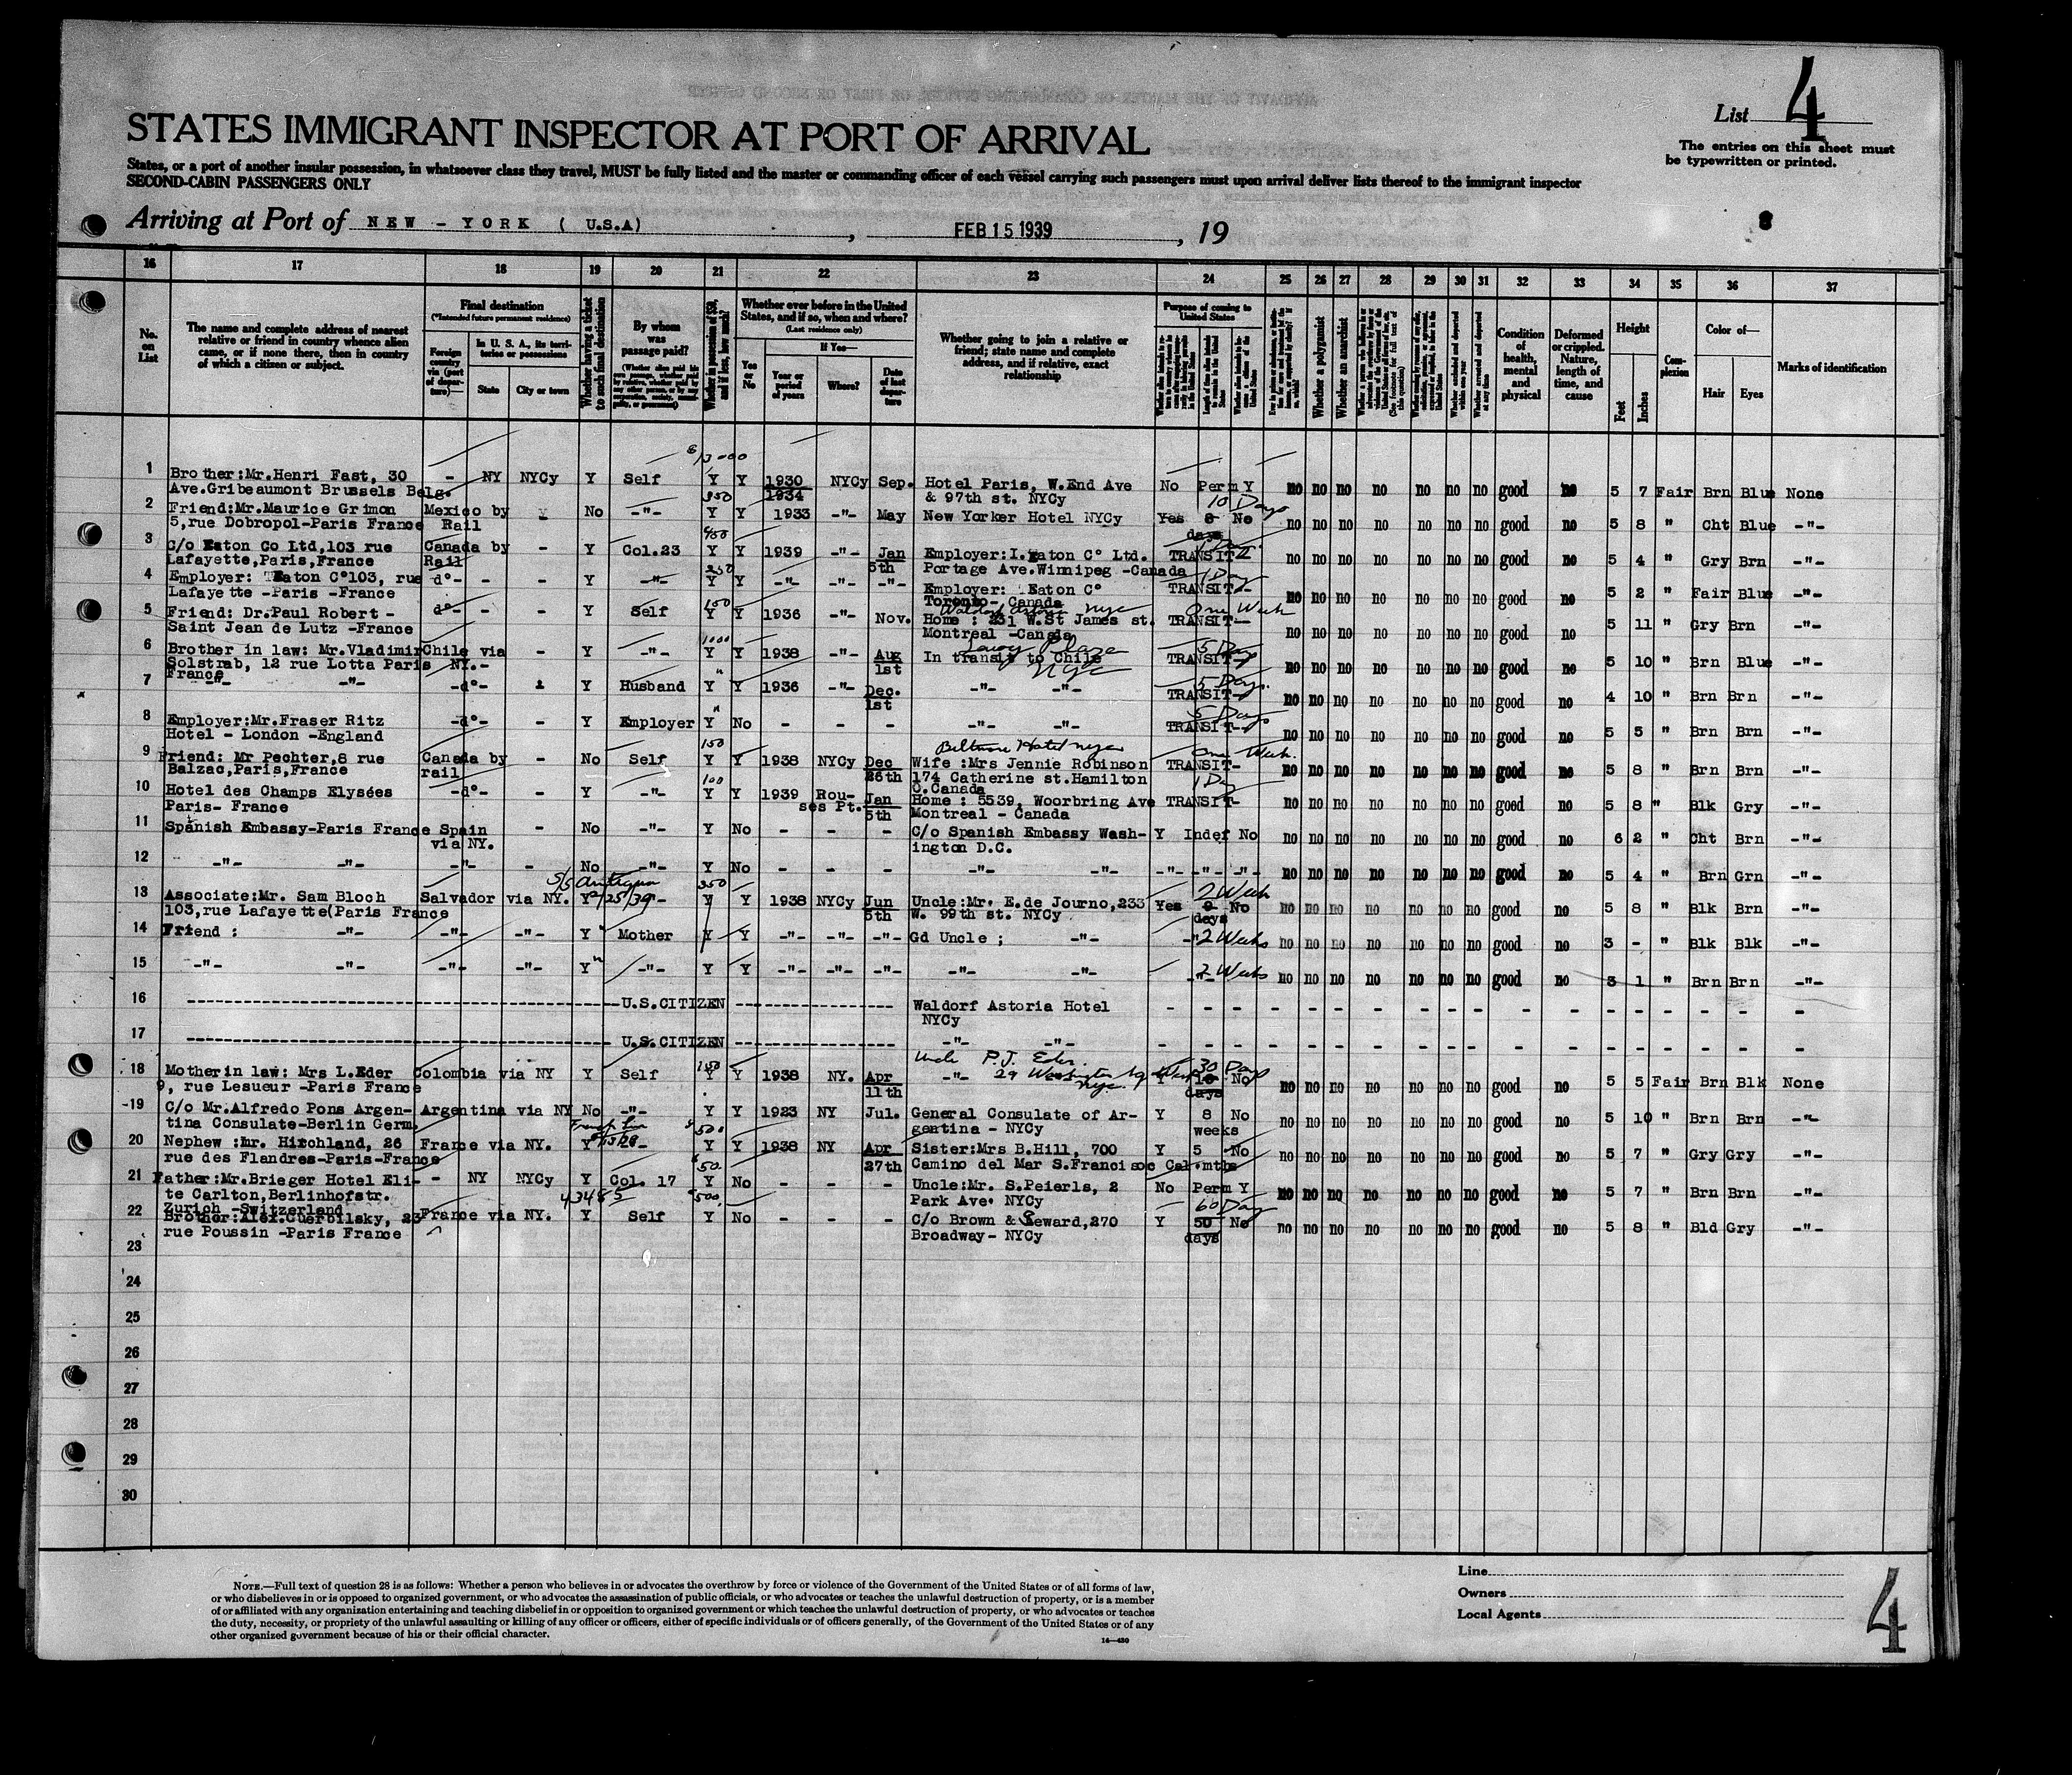 List 4
The entries on this sheet must
be typewritten or printed.
STATES IMMIGRANT INSPECTOR AT PORT OF ARRIVAL
States, or a port of another insular possession, in whatsoever class they travel, MUST be fully listed and the master or commanding officer of each vessel carrying such passengers must upon arrival deliver lists thereof to the immigrant inspector
SECOND-CABIN PASSENGERS ONLY
Arriving at Port of NEW - YORK ( U.S.A) , FEB 15 1939 , 19
16 17 18 19 20 21 22 23 24 25 26 27 28 29 30 31 32 33 34 35 36 37
No. on List
The name and complete address of nearest
relative or friend in country whence alien
came, or if none there, then in country
of which a citizen or subject.
Final destination
(*Intended future permanent residence)
Foreign country via (port of departure)—
In U. S. A., its territories or possessions
State City or town
Whether having a ticket to such final destination
By whom was passage paid?
Whether in possession of $50, and if less, how much?
Whether ever before in the United
States, and if so, when and where?
(Last residence only)
Yes or No
If Yes—
Year or period of years
Where?
Date of last departure
Whether going to join a relative or
friend; state name and complete
address, and if relative, exact
relationship
Purpose of coming to United States
Whether a polygamist
Whether an anarchist
Condition of health, mental and physical
Deformed or crippled. Nature, length of time, and cause
Height
Feet Inches
Complexion
Color of—
Hair Eyes
Marks of identification
1 Brother:Mr.Henri Fast, 30 - NY NYCy Y Self Y Y 1930 NYCy Sep. Hotel Paris, W.End Ave No Perm Y no no no no no no no good no 5 7 Fair Brn Blue None
Ave.Gribeaumont Brussels Belg. 1934 & 97th st. NYCy
2 Friend:Mr.Maurice Grimon Mexico by No -"- 350 Y Y 1933 -"- May New Yorker Hotel NYCy 10 Days Yes 8 No no no no no no no no good no 5 8 " Cht Blue -"-
5,rue Dobropol-Paris France Rail days
3 C/o Eaton Co Ltd,103 rue Canada by - Y Col.23 Y Y 1939 -"- Jan Employer: Eaton C° Ltd. TRANSIT no no no no no no no good no 5 4 " Gry Brn -"-
Lafayette,Paris,France Rail 5th Portage Ave.Winnipeg -Canada
4 Employer: Eaton C°103, rue d°- - - Y -"- 250 Y Y -"- -"- -"- Employer: Eaton C° 1 Day TRANSIT- no no no no no no no good no 5 2 " Fair Blue -"-
Lafayette -Paris -France Toronto- Canada
5 Friend: Dr.Paul Robert - d°- - - Y Self 150 Y Y 1936 -"- Nov. Waldorf Astoria NYC One Week TRANSIT- no no no no no no no good no 5 11 " Gry Brn -"-
Saint Jean de Lutz -France Home : 231 W.St James st.
Montreal -Canada
6 Brother in law: Mr.Vladimir Chile via - Y -"- 1000 Y Y 1938 -"- Aug In transit to Chile Savoy Plaza NYC 5 Days TRANSIT- no no no no no no no good no 5 10 " Brn Blue -"-
Solstrab, 12 rue Lotta Paris NY.- 1st
France
7 -"- -"- -d°- Y Husband Y Y 1936 -"- Dec. -"- -"- 5 Days. TRANSIT- no no no no no no no good no 4 10 " Brn Brn -"-
1st
8 Employer:Mr.Fraser Ritz -d°- - Y Employer Y No - - - -"- -"- 5 Days TRANSIT- no no no no no no no good no 5 5 " Brn Brn -"-
Hotel - London -England
9 Friend: Mr Pechter,8 rue Canada by - No Self 150 Y Y 1938 NYCy Dec Biltmore Hotel NYC Wife :Mrs Jennie Robinson One Week. TRANSIT- no no no no no no no good no 5 8 " Brn Brn -"-
Balzac,Paris,France rail 26th 174 Catherine st.Hamilton
O.Canada
10 Hotel des Champs Elysées -d°- - Y -"- 100 Y Y 1939 Rou- Jan Home : 5539, Woorbring Ave 1 Day TRANSIT- no no no no no no no good no 5 8 " Blk Gry -"-
Paris- France ses Pt. 5th Montreal - Canada
11 Spanish Embassy-Paris France Spain - No -"- Y No - - - C/o Spanish Embassy Wash- Y Indef No no no no no no no no good no 6 2 " Cht Brn -"-
via NY. ington D.C.
12 -"- -"- -"- - No -"- Y No - - - -"- -"- -"- -"- -"- no no no no no no no good no 5 4 " Brn Grn -"-
13 Associate:Mr. Sam Bloch Salvador via NY. Y S/S Antigua 2/25/39 350 Y Y 1938 NYCy Jun Uncle:Mr. E.de Journo,233 2 Week Yes 8 No no no no no no no no good no 5 8 " Blk Brn -"-
103,rue Lafayette(Paris France 5th W. 99th st. NYCy days
14 Friend : -"- -"- -"- Y Mother Y Y -"- -"- -"- Gd Uncle ; -"- 2 Weeks no no no no no no no good no 3 - " Blk Blk -"-
15 -"- -"- -"- -"- Y -"- Y Y -"- -"- -"- -"- -"- 2 Weeks no no no no no no no good no 3 1 " Brn Brn -"-
16 ----------U.S.CITIZEN---------- Waldorf Astoria Hotel - - - - - - - - - - - - - - - - - -
NYCy
17 ----------U.S.CITIZEN---------- -"- -"- - - - - - - - - - - - - - - - - - -
18 Mother in law: Mrs L.Eder Colombia via NY Y Self 150 Y Y 1938 NY. Apr Uncle P.J. Eder. 29 Washington Sq West NYC. 30 Days Y No no no no no no no no good no 5 5 Fair Brn Blk None
9, rue Lesueur -Paris France 11th days
19 C/o Mr.Alfredo Pons Argen- Argentina via NY No -"- Y Y 1923 NY Jul. General Consulate of Ar- Y 8 No no no no no no no no good no 5 10 " Brn Brn -"-
tina Consulate-Berlin Germ. gentina - NYCy weeks
20 Nephew :Mr. Hirchland, 26 France via NY. Y French Line -"- 500 Y Y 1938 NY Apr Sister:Mrs B.Hill, 700 Y 5 No no no no no no no no good no 5 7 " Gry Gry -"-
rue des Flandres-Paris-France 27th Camino del Mar S.Francisco Cal. mths
21 Father:Mr.Brieger Hotel Eli- - NY NYCy Y Col. 17 50. Y No - - - Uncle:Mr. S.Peierls, 2 No Perm Y no no no no no no no good no 5 7 " Brn Brn -"-
te Carlton,Berlinhofstr. Park Ave. NYCy
Zurich -Switzerland
22 Brother:Alex.Guerbilsky, 23 France via NY. 43485 Y Self 500. Y No - - - C/o Brown & Seward,270 60 Days Y 50 No no no no no no no no good no 5 8 " Bld Gry -"-
rue Poussin -Paris France Broadway- NYCy days
23
24
25
26
27
28
29
30
NOTE.—Full text of question 28 is as follows: Whether a person who believes in or advocates the overthrow by force or violence of the Government of the United States or of all forms of law,
or who disbelieves in or is opposed to organized government, or who advocates the assassination of public officials, or who advocates or teaches the unlawful destruction of property, or is a member
of or affiliated with any organization entertaining and teaching disbelief in or opposition to organized government or which teaches the unlawful destruction of property, or who advocates or teaches
the duty, necessity, or propriety of the unlawful assaulting or killing of any officer or officers, either of specific individuals or of officers generally, of the Government of the United States or of any
other organized government because of his or their official character.
Line
Owners
Local Agents
4